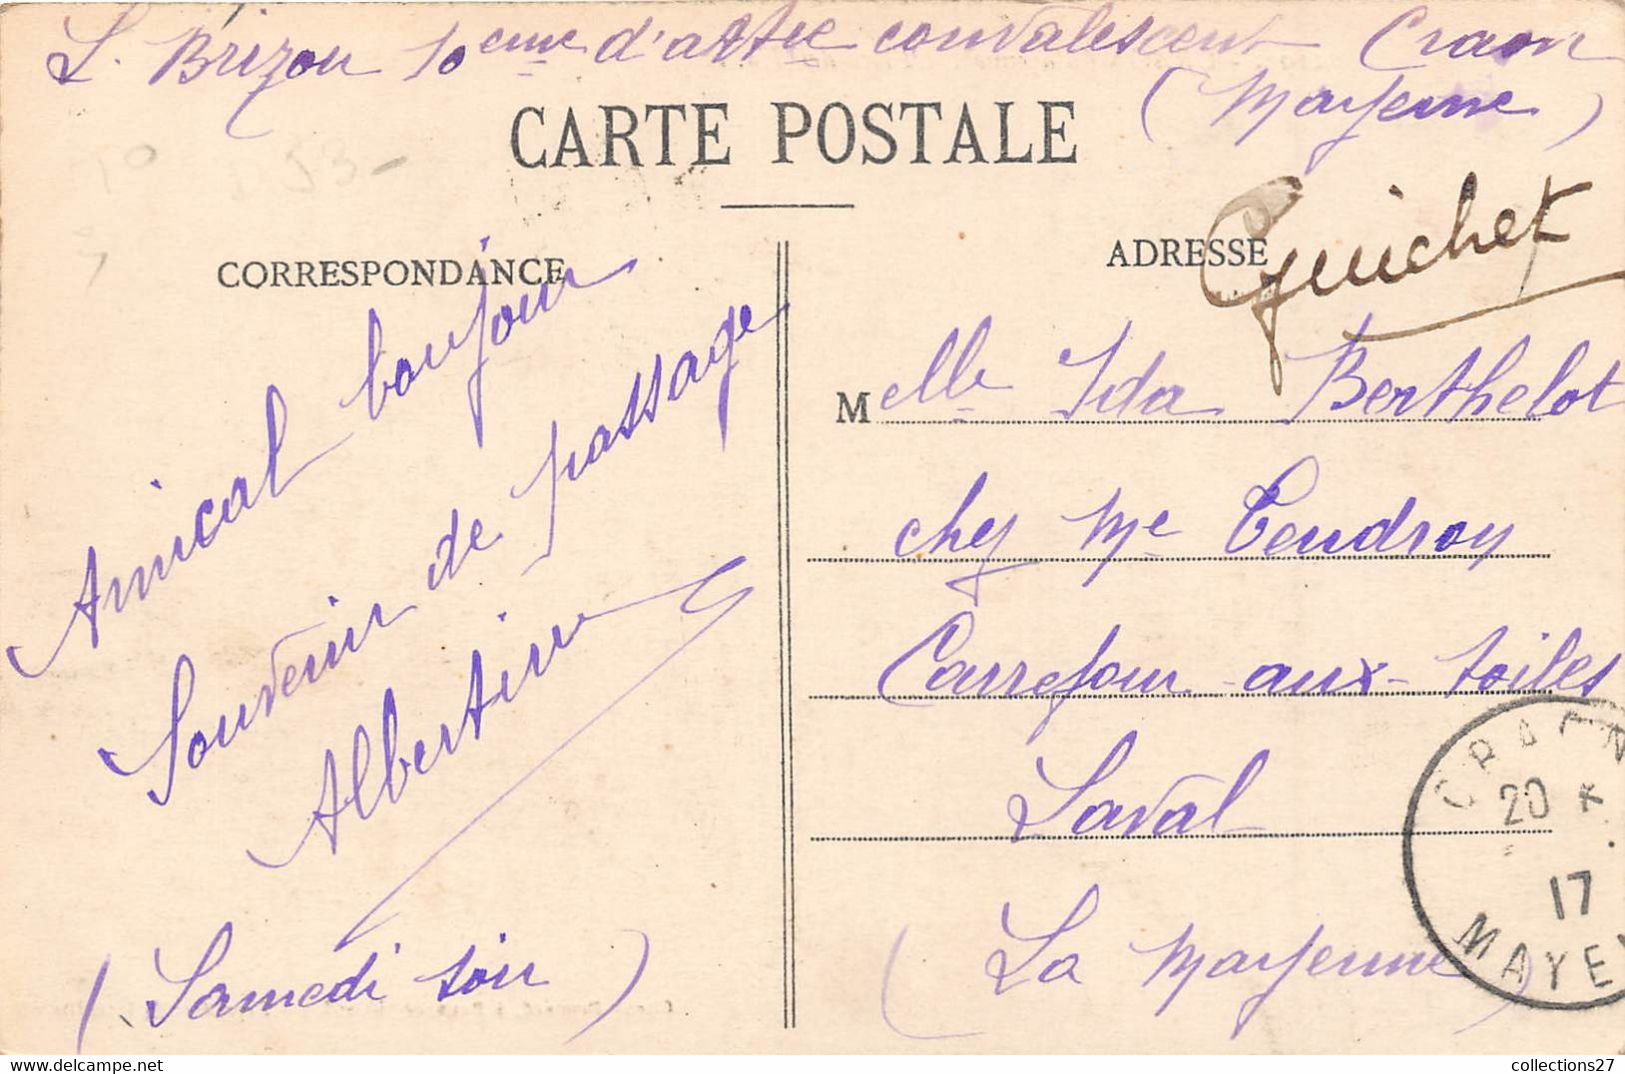 L. Brizou 10eme d'attie convalescent Craon
(Mayenne)
CARTE POSTALE
53-
CORRESPONDANCE
ADRESSE
Guichet
Amical bonjour
Souvenir de passage
Albertine
(Samedi soir)
Melle Ida Berthelot
chez Me Gendroy
Carrefour-aux-toiles
Laval
(La Mayenne)
CRAON
20 *
17
MAYE
https://www.delcampe.net
collections27